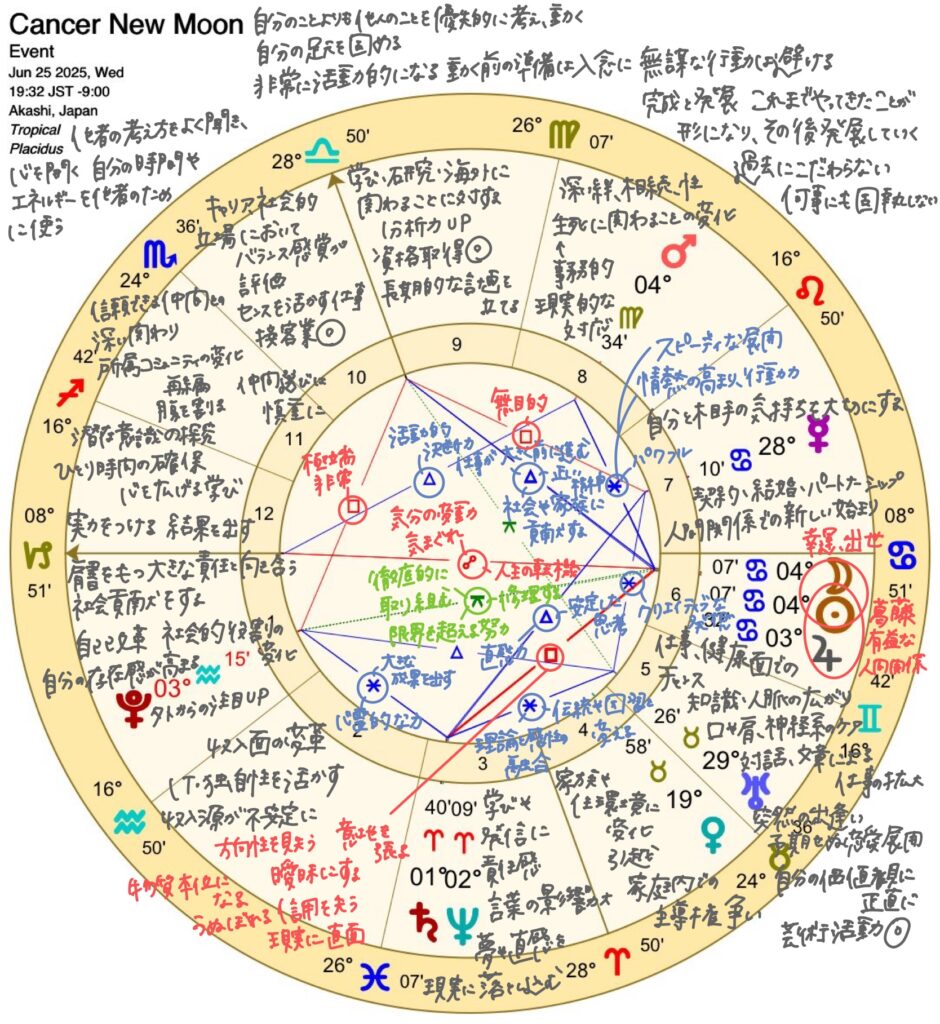 Cancer New Moon
Event
Jun 25 2025, Wed
19:32 JST -9:00
Akashi, Japan
Tropical
Placidus
自分のことよりも他人のことを優先的に考え、動く
自分の足元を固める
非常に活動的になる 動く前の準備は入念に 無謀な行動は避ける
完成と発展 これまでやってきたことが
形になり、その後発展していく
過去にこだわらない
何事にも固執しない
他者の考え方をよく聞き、
心を開く 自分の時間や
エネルギーを他者のため
に使う
28° ♎ 50'
26° ♍ 07'
16° ♌ 50'
08° ♋ 51'
42' ♊ 16°
36' ♉ 24°
28° ♈ 50'
26° ♓ 07'
16° ♒ 50'
08° ♑ 51'
42' ♐ 16°
24° ♏ 36'
キャリア、社会的
立場において
バランス感覚が
評価
センスを活かす仕事
接客業◎
学び、研究、海外に
関わることに対する
分析力UP
資格取得◎
長期的な計画を
立てる
深い絆、相続、性
生死に関わることの変化
↑
事務的
現実的な
対応
♂ 04° ♍ 34'
スピーディな展開
情熱の高まり、行動力
パワフル
精神
自分と相手の気持ちを大切にする
☿ 28° ♋ 10'
契約、結婚、パートナーシップ
人間関係での新しい始まり
幸運、出世
☽ 04° ♋ 07'
☉ 04° ♋ 07'
♃ 03° ♋ 32'
葛藤
有益な
人間関係
仕事、健康面での
チャンス
知識、人脈の広がり
口や肩、神経系のケア
対話、文章による
仕事の拡大
26' ♉ 29° ♅
58' ♉ 19° ♀
突然の出逢い
予期せぬ恋愛展開
自分の価値観に
正直に
芸術活動◎
家族や
住環境に
変化
引越し
家庭内での
主導権争い
40' ♈ 01° ♄
09' ♈ 02° ♆
学びや
発信に
責任感
言葉の影響力大
夢や直感を
現実に落とし込む
収入面の変革
IT・独創性を活かす
収入源が不安定に
自己変革 社会的役割の
変化
自分の存在感が高まる
♇ 03° ♒ 15'
外からの注目UP
実力をつける 結果を出す
肩書をもつ 大きな責任と向き合う
社会貢献をする
潜在意識の探究
ひとり時間の確保
心を広げる学び
信頼できる仲間との
深い関わり
所属コミュニティの変化
再編
腹を割る
仲間選びに
慎重に
9
10
11
12
8
7
6
5
4
3
2
無目的
極端
非常
活動的
決断力
仕事が大きく前に進む
社会や家族に
貢献する
気分の変動
気まぐれ
人生の転機
徹底的に
取り組む
修理する
限界を超える努力
安定した
思考
クリエイティブな
直感力
大きな
成果を出す
心霊的な力
伝統や因習を
変える
理論と感性の
融合
方向性を見失う
曖昧にする
意地を
張る
物質本位に
なる
うぬぼれる 信用を失う
現実に直面